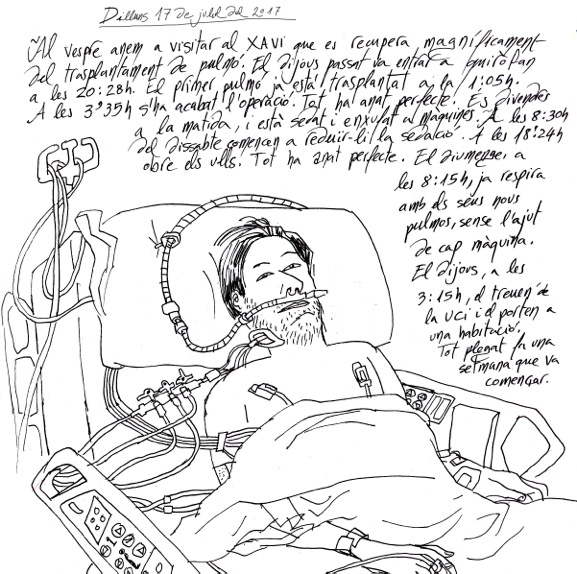 Dilluns 17 de juliol del 2017
Al vespre anem a visitar al XAVI que es recupera magníficament
del trasplantament de pulmó. El dijous passat va entrar a quiròfan
a les 20:28h. El primer pulmó ja està trasplantat a la 1:05h.
A les 3'35h s'ha acabat l'operació. Tot ha anat perfecte. És divendres
a la matida, i està sedat i enxufat a màquines. A les 8:30h
del dissabte comencen a reduir-li la sedació. A les 18:24h
obre els ulls. Tot ha anat perfecte. El diumenge, a
les 8:15h, ja respira
amb els seus nous
pulmos, sense l'ajut
de cap màquina.
El dijors, a les
3:15h, el treuen de
la UCI i el porten a
una habitació.
Tot plegat fa una
setmana que va
començar.